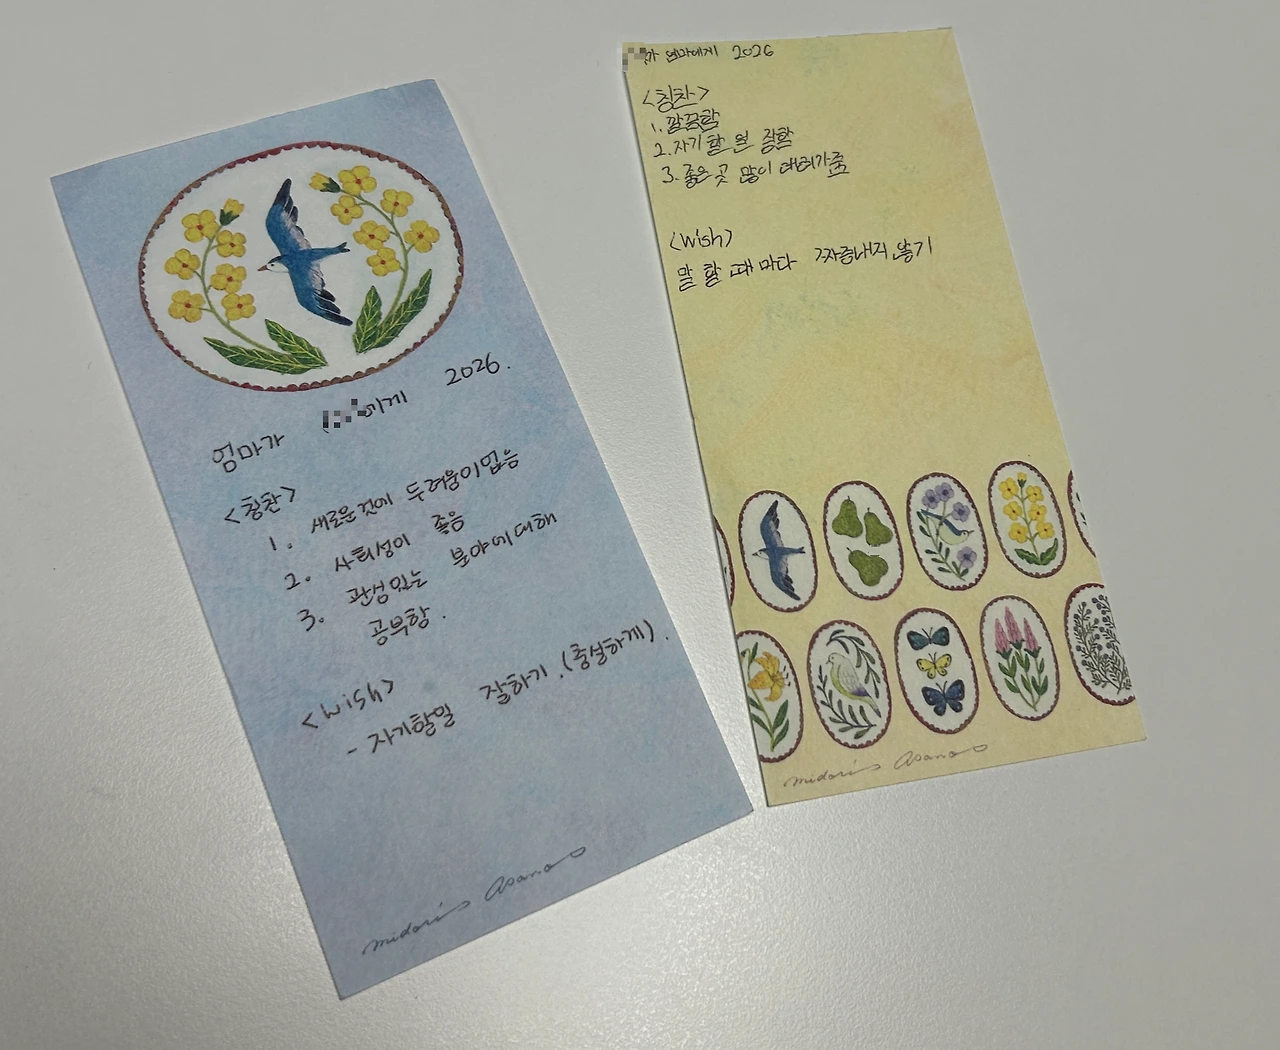 엄마가 에게 2026.
<칭찬>
1. 새로운것에 두려움이없음
2. 사회성이 좋음
3. 관심있는 분야에대해
공부함.
<wish>
- 자기할일 잘하기.(충실하게).
midori asano
가 엄마에게 2026
<칭찬>
1. 깔끔함
2. 자기 할 일 잘함
3. 좋은 곳 많이 데려가줌
<wish>
말 할 때 마다 짜증내지 않기
midori asano